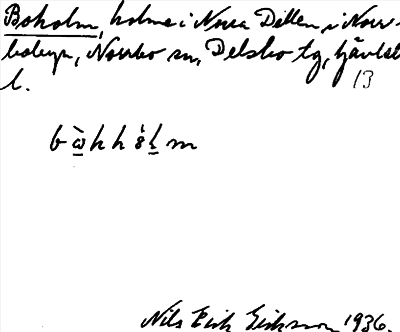 Boholm, holme i Norra Dellen, i Norr-
bobyn, Norrbo sn, Delsbo tg, Gävleb.
l. 13
Nils Erik Eriksson 1936.